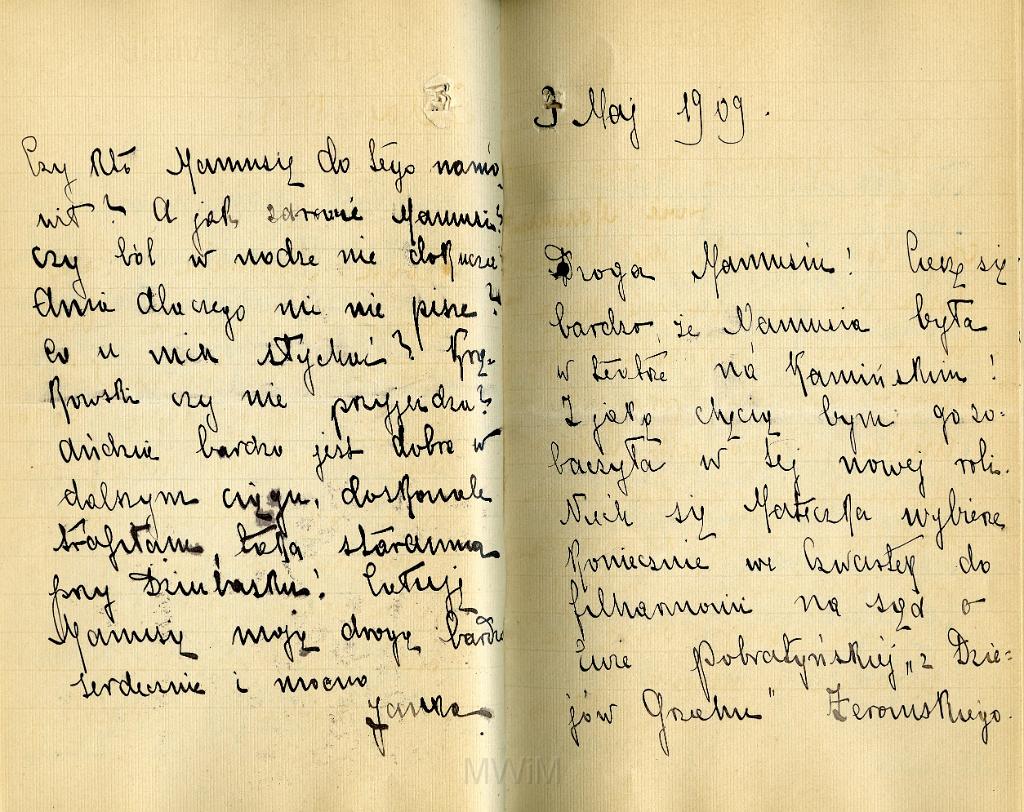 3 Maj 1909.
Droga Mamusiu! Cieszę się
bardzo, że Mamusia była
w teatrze na Kamińskim!
Z jaką chęcią bym go zo-
baczyła w tej nowej roli.
Niech się Mateczka wybierze
koniecznie we Czwartek do
filharmonii na sąd o
Ewie Pobratyńskiej „z Dzie=
jów Grzechu" Żeromskiego.
Czy kto Mamusię do tego namó-
wił? A jak zdrowie Mamusi?
czy ból w nodze nie dokucza?
dlaczego nic nie pisze?
Co u nich słychać?
czy nie przyjeżdża?
bardzo jest dobra w
dalszym ciągu, doskonale
trafiłam, taka staranna
przy Dziubasku! Całuję
Mamusię moją drogą bardzo
serdecznie i mocno
Janka
MWiM